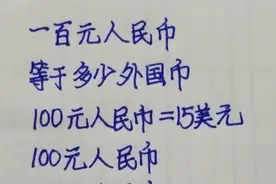 一百元人民币
等于多少外国币
100元人民币=15美元
100元人民币